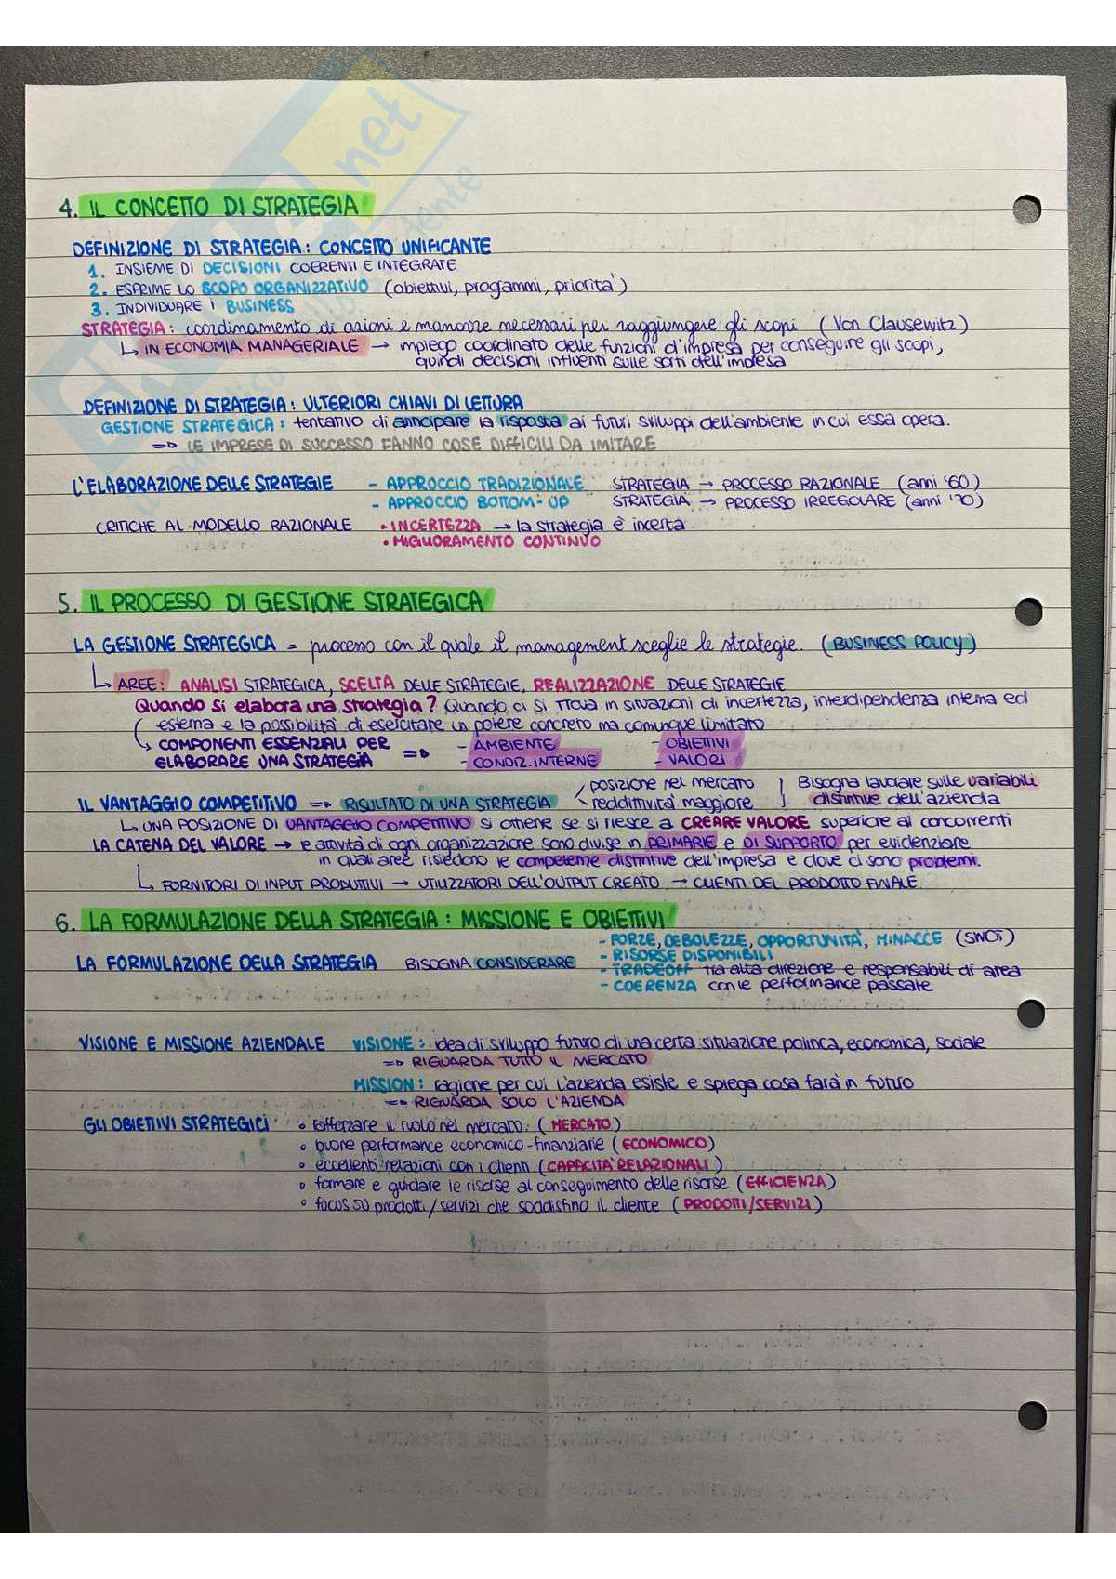 4. IL CONCETTO DI STRATEGIA
DEFINIZIONE DI STRATEGIA: CONCETTO UNIFICANTE
1. INSIEME DI DECISIONI COERENTI E INTEGRATE
2. ESPRIME LO SCOPO ORGANIZZATIVO (obiettivi, programmi, priorità)
3. INDIVIDUARE I BUSINESS
STRATEGIA: coordinamento di azioni e manovre necessari per raggiungere gli scopi (Von Clausewitz)
↳ IN ECONOMIA MANAGERIALE → impiego coordinato delle funzioni d'impresa per conseguire gli scopi,
quindi decisioni influenti sulle sorti dell'impresa
DEFINIZIONE DI STRATEGIA: ULTERIORI CHIAVI DI LETTURA
GESTIONE STRATEGICA: tentativo di anticipare la risposta ai futuri sviluppi dell'ambiente in cui essa opera.
=> LE IMPRESE DI SUCCESSO FANNO COSE DIFFICILI DA IMITARE
L'ELABORAZIONE DELLE STRATEGIE - APPROCCIO TRADIZIONALE STRATEGIA → PROCESSO RAZIONALE (anni '60)
- APPROCCIO BOTTOM-UP STRATEGIA → PROCESSO IRREGOLARE (anni '70)
CRITICHE AL MODELLO RAZIONALE • INCERTEZZA → la strategia è incerta
• MIGLIORAMENTO CONTINUO
5. IL PROCESSO DI GESTIONE STRATEGICA
LA GESTIONE STRATEGICA = processo con il quale il management sceglie le strategie. (BUSINESS POLICY)
↳ AREE: ANALISI STRATEGICA, SCELTA DELLE STRATEGIE, REALIZZAZIONE DELLE STRATEGIE
Quando si elabora una strategia? Quando ci si trova in situazioni di incertezza, interdipendenza interna ed
esterna e la possibilità di esercitare un potere concreto ma comunque limitato
↳ COMPONENTI ESSENZIALI PER => - AMBIENTE - OBIETTIVI
ELABORARE UNA STRATEGIA - CONDIZ. INTERNE - VALORI
IL VANTAGGIO COMPETITIVO => RISULTATO DI UNA STRATEGIA posizione nel mercato Bisogna lavorare sulle variabili
redditività maggiore distintive dell'azienda
↳ UNA POSIZIONE DI VANTAGGIO COMPETITIVO si ottiene se si riesce a CREARE VALORE superiore ai concorrenti
LA CATENA DEL VALORE → le attività di ogni organizzazione sono divise in PRIMARIE e DI SUPPORTO per evidenziare
in quali aree risiedono le competenze distintive dell'impresa e dove ci sono problemi.
↳ FORNITORI DI INPUT PRODUTTIVI → UTILIZZATORI DELL'OUTPUT CREATO → CLIENTI DEL PRODOTTO FINALE
6. LA FORMULAZIONE DELLA STRATEGIA: MISSIONE E OBIETTIVI
- FORZE, DEBOLEZZE, OPPORTUNITÀ, MINACCE (SWOT)
LA FORMULAZIONE DELLA STRATEGIA BISOGNA CONSIDERARE - RISORSE DISPONIBILI
- TRADEOFF tra alta direzione e responsabili di area
- COERENZA con le performance passate
VISIONE E MISSIONE AZIENDALE VISIONE: idea di sviluppo futuro di una certa situazione politica, economica, sociale
=> RIGUARDA TUTTO IL MERCATO
MISSION: ragione per cui l'azienda esiste e spiega cosa farà in futuro
=> RIGUARDA SOLO L'AZIENDA
GLI OBIETTIVI STRATEGICI • rafforzare il ruolo nel mercato. (MERCATO)
• buone performance economico-finanziarie (ECONOMICO)
• eccellenti relazioni con i clienti (CAPACITÀ RELAZIONALI)
• formare e guidare le risorse al conseguimento delle risorse (EFFICIENZA)
• focus su prodotti/servizi che soddisfino il cliente (PRODOTTI/SERVIZI)